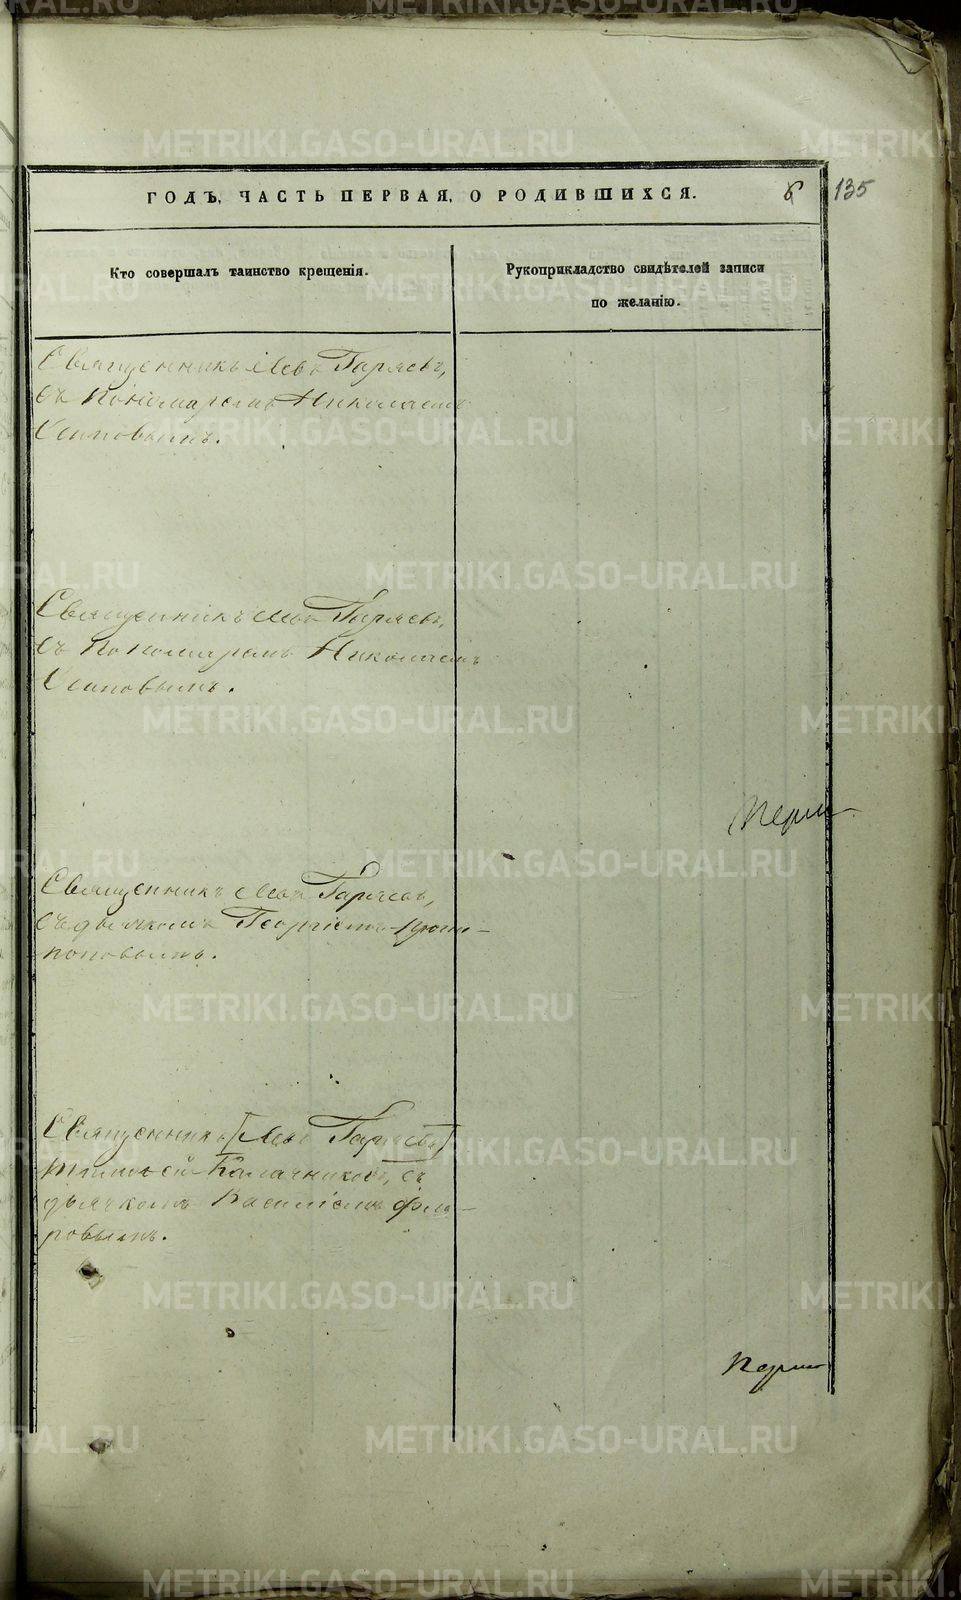 ГОДЪ, ЧАСТЬ ПЕРВАЯ, О РОДИВШИХСЯ. 6 135
Кто совершалъ таинство крещенія.
Рукоприкладство свидѣтелей записи
по желанію.
Священникъ Левъ Гаряевъ,
съ пономаремъ Николаемъ
Осиповымъ.
Священникъ Левъ Гаряевъ,
съ пономаремъ Николаемъ
Осиповымъ.
Священникъ Левъ Гаряевъ,
съ дьячкомъ Георгіемъ
поповымъ.
Священникъ [Левъ Гаряевъ]
Калачниковъ, съ
дьячкомъ Василіемъ Фла-
ровымъ.
METRIKI.GASO-URAL.RU